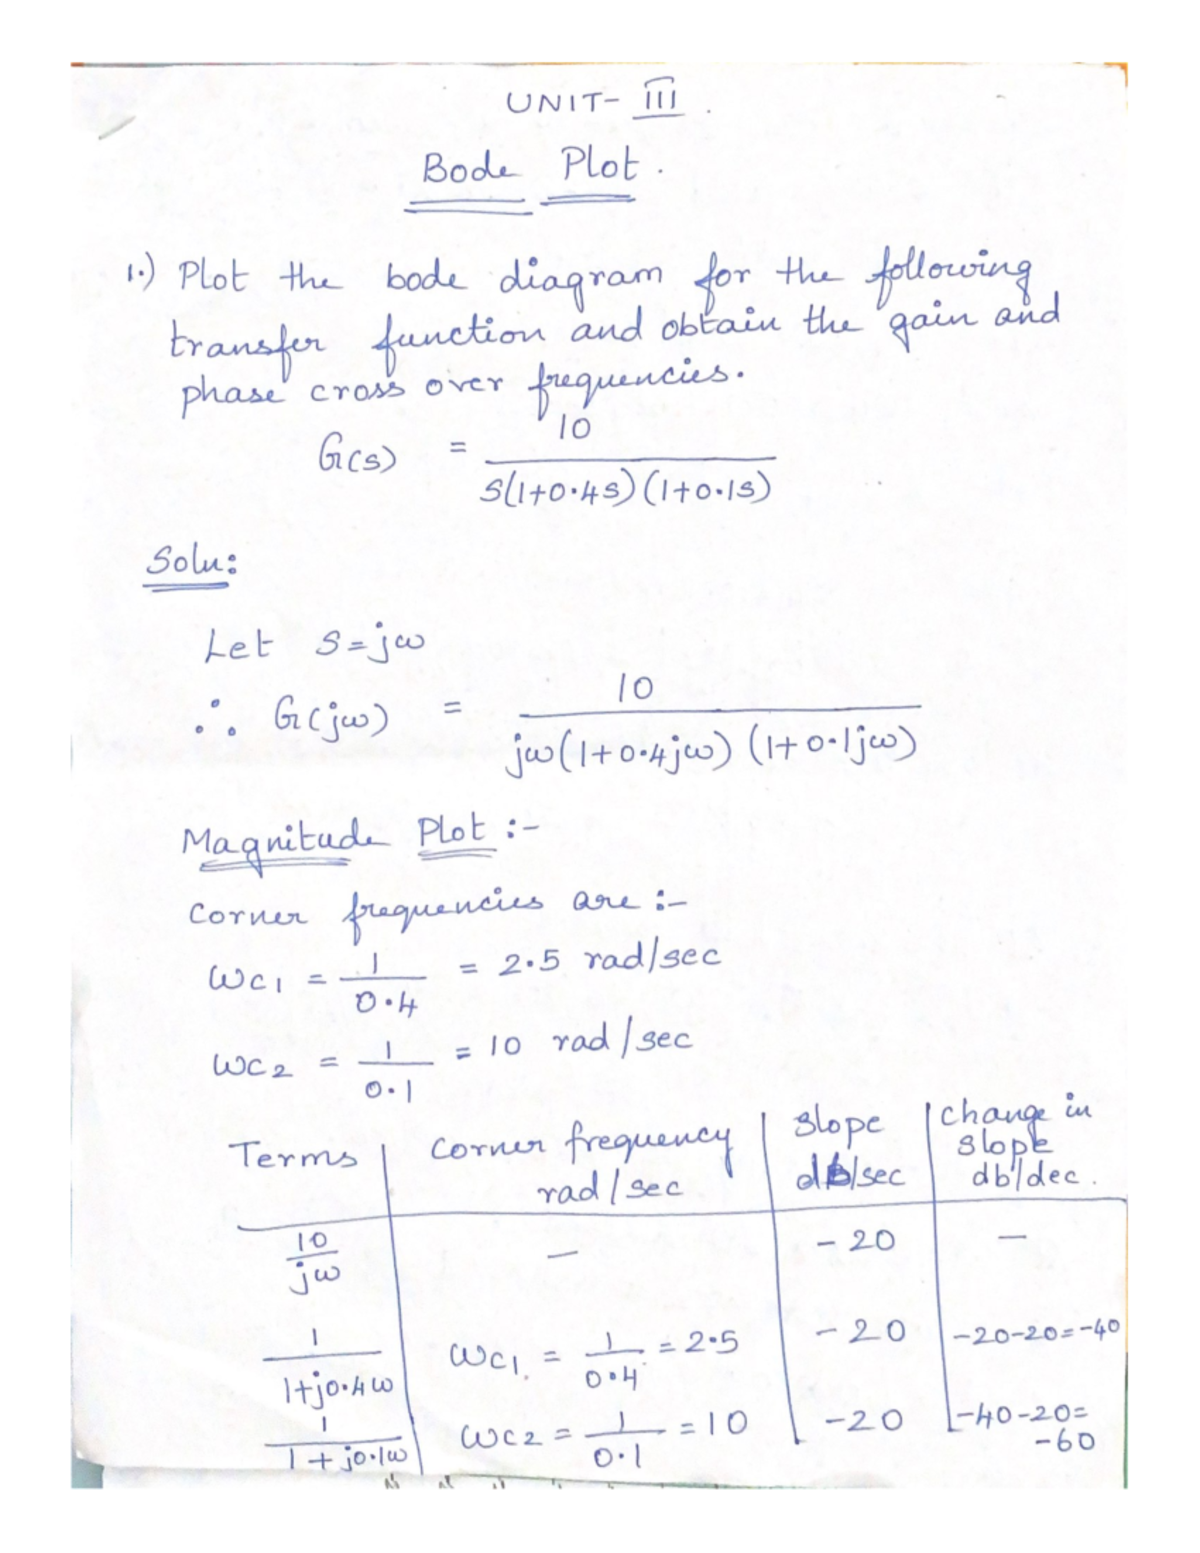 UNIT- III.
Bode Plot.
1.) Plot the bode diagram for the following
transfer function and obtain the gain and
phase cross over frequencies.
G(s) = 10 / s(1+0.4s)(1+0.1s)
Solu:
Let s=jω
∴ G(jω) = 10 / jω(1+0.4jω) (1+0.1jω)
Magnitude Plot :-
Corner frequencies are :-
ωc1 = 1/0.4 = 2.5 rad/sec
ωc2 = 1/0.1 = 10 rad/sec
Terms | Corner frequency rad/sec | Slope db/sec | Change in slope db/dec.
10/jω | — | -20 | —
1/1+j0.4ω | ωc1. = 1/0.4 = 2.5 | -20 | -20-20=-40
1/1+j0.1ω | ωc2 = 1/0.1 = 10 | -20 | -40-20=-60